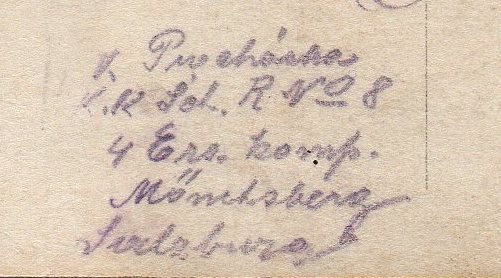 V. Procháska
K.K Sch. R No 8
4 Ers. komp.
Mőnchsberg
Salzburg